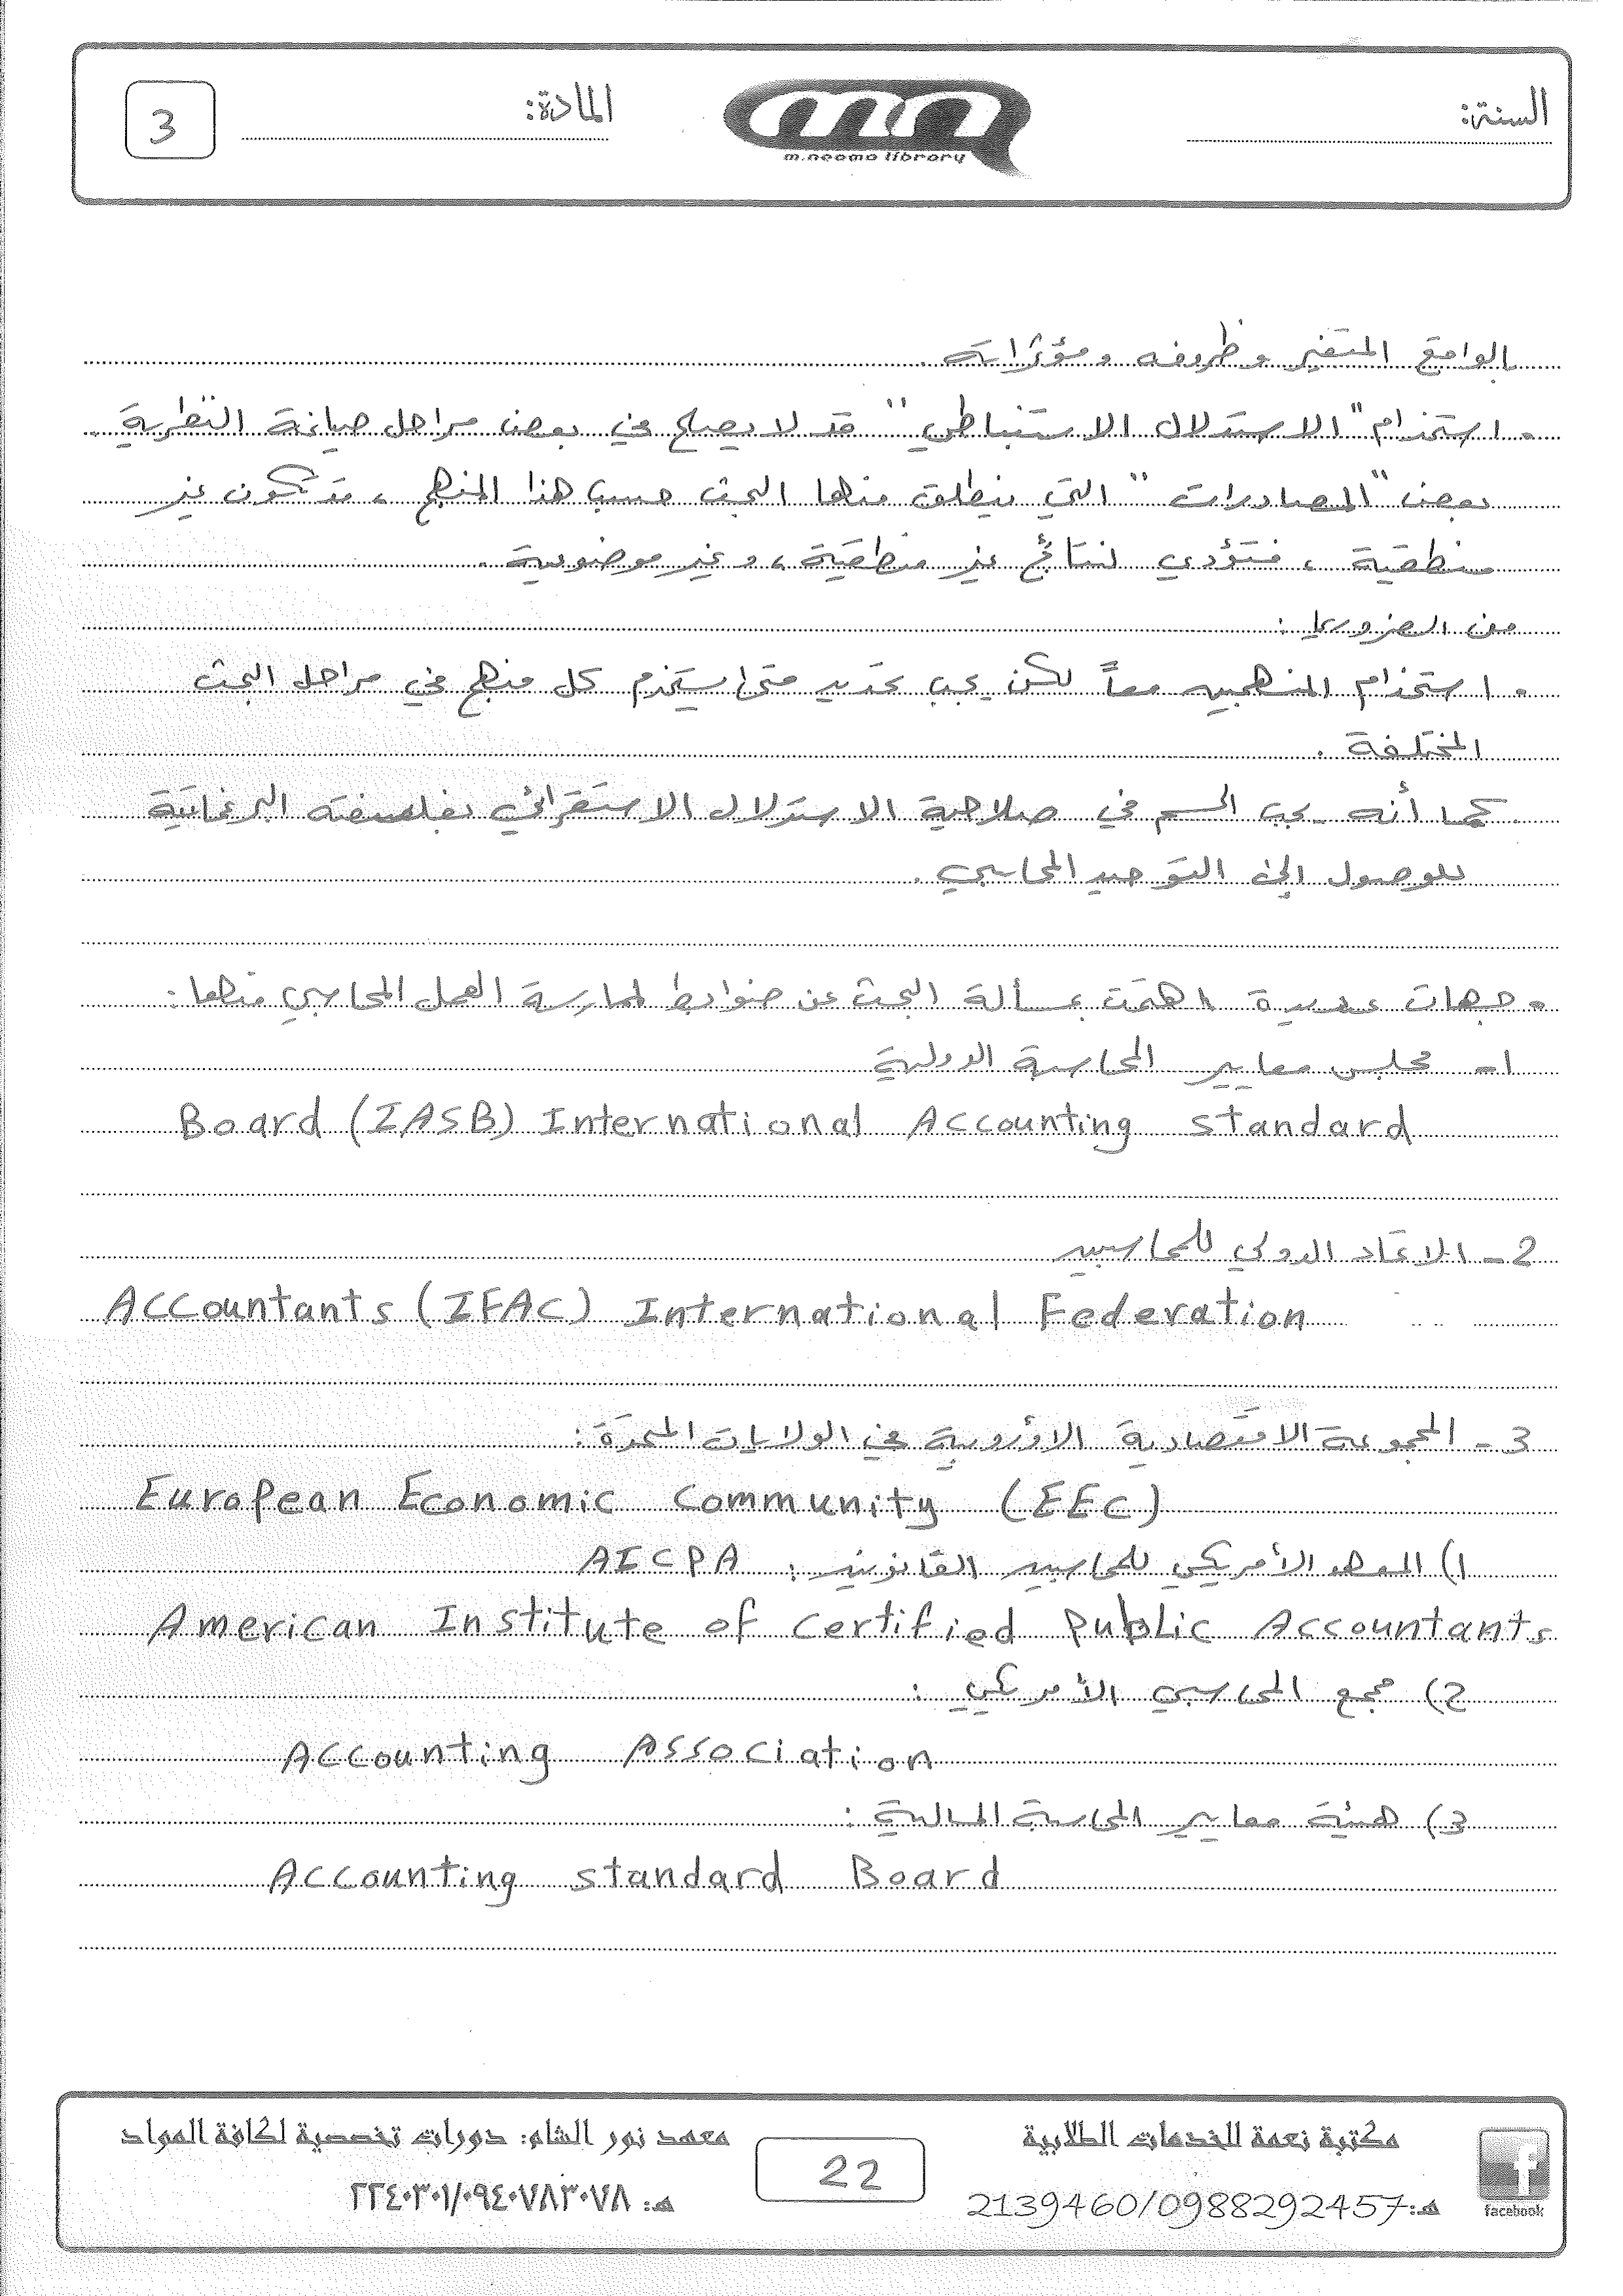 السنة:
m.neama library
المادة:
3
بالواقع المتغير وظروفه ومؤثراته.
• استخدام "الاستدلال الاستنباطي" قد لا يصلح في بعض مراحل صياغة النظرية
بعض "المصادرات" التي ينطلق منها البحث حسب هذا المنهج، قد تكون غير
منطقية، فتؤدي لنتائج غير منطقية، وغير موضوعية.
من الضروري:
• استخدام المنهجين معاً لكن يجب تحديد متى استخدم كل منهج في مراحل البحث
المختلفة.
كما أنه يجب الحسم في صلاحية الاستدلال الاستقرائي بفلسفته البرغماتية
للوصول إلى التوحيد المحاسبي.
• جهات عديدة اهتمت بمسألة البحث عن ضوابط لممارسة العمل المحاسبي منها:
1- مجلس معايير المحاسبة الدولية
Board (IASB) International Accounting standard
2- الاتحاد الدولي للمحاسبين
Accountants (IFAC) International Federation
3- المجموعة الاقتصادية الأوروبية في الولايات المتحدة:
European Economic Community (EEC)
1) المعهد الأمريكي للمحاسبين القانونيين: AICPA
American Institute of certified Public Accountants
2) مجمع المحاسبي الأمريكي:
Accounting Association
3) هيئة معايير المحاسبة المالية:
Accounting standard Board
مكتبة نعمة للخدمات الطلابية
هـ: 2139460/0988292457
facebook
22
معهد نور الشام: دورات تخصصية لكافة المواد
هـ: ٢٢٤٠٣٠١/٠٩٤٠٧٨٣٠٧٨